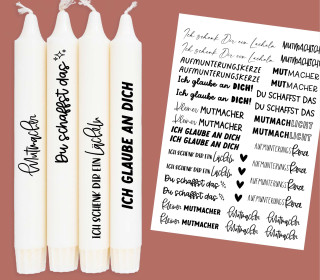 Mutmacher
Du schaffst das
ICH SCHENK DIR EIN Lächeln
ICH GLAUBE AN DICH
Ich schenk Dir ein Lächeln
Ich schenk Dir ein Lächeln
AUFMUNTERUNGSKERZE
AUFMUNTERUNGSKERZE
Ich glaube an DICH!
Ich glaube an DICH!
kleiner MUTMACHER
kleiner MUTMACHER
ICH GLAUBE AN DICH
ICH GLAUBE AN DICH
ICH SCHENK DIR EIN Lächeln
ICH SCHENK DIR EIN Lächeln
Du schaffst das
Du schaffst das
kleiner MUTMACHER
kleiner MUTMACHER
MUTMACHER
MUTMACHER
MUTMACHER
DU SCHAFFST DAS
DU SCHAFFST DAS
MUTMACHLICHT
MUTMACHLICHT
AUFMUNTERUNGS Kerze
AUFMUNTERUNGS Kerze
AUFMUNTERUNGS Kerze
AUFMUNTERUNGS Kerze
Mutmacher Mutmacher
Mutmacher Mutmacher